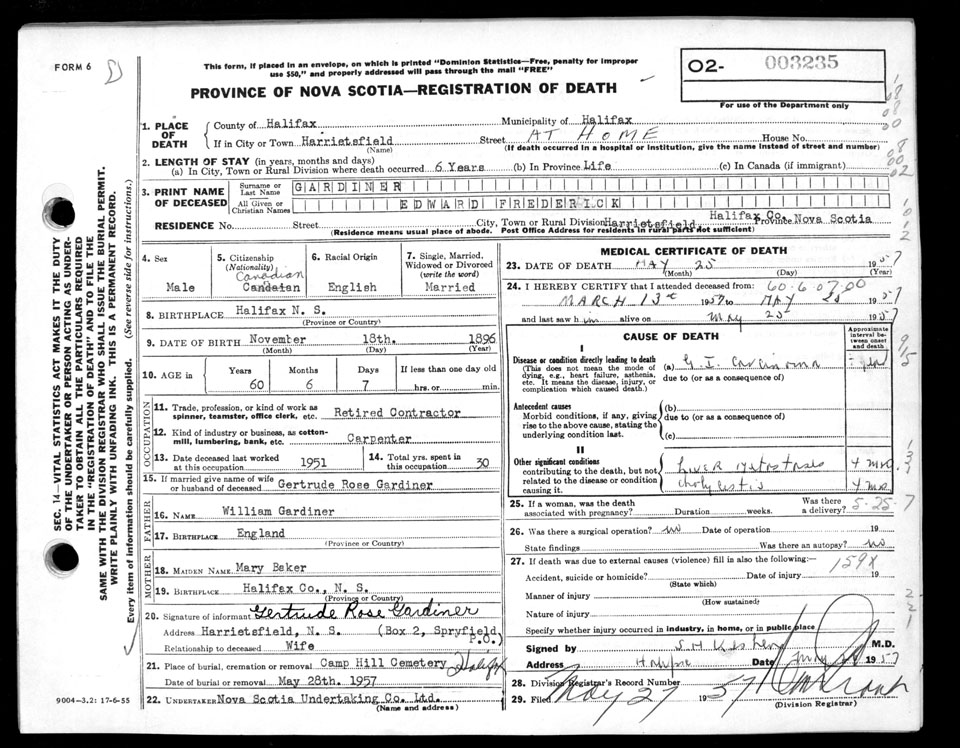 FORM 6
This form, if placed in an envelope, on which is printed "Dominion Statistics—Free, penalty for improper
use $50," and properly addressed will pass through the mail "FREE"
PROVINCE OF NOVA SCOTIA—REGISTRATION OF DEATH
O2- 003235
For use of the Department only
1. PLACE OF DEATH
County of Halifax Municipality of Halifax
If in City or Town Harrietsfield Street AT HOME House No.
(Name) (If death occurred in a hospital or institution, give the name instead of street and number)
2. LENGTH OF STAY (in years, months and days)
(a) In City, Town or Rural Division where death occurred 6 Years (b) In Province Life (c) In Canada (if immigrant)
3. PRINT NAME OF DECEASED
Surname or Last Name GARDINER
All Given or Christian Names EDWARD FREDERICK
RESIDENCE No. Street City, Town or Rural Division Harrietsfield, Halifax Co. Province Nova Scotia
(Residence means usual place of abode. Post Office Address for residents in rural parts not sufficient)
4. Sex
Male
5. Citizenship
(Nationality)
Canadian
Candaian
6. Racial Origin
English
7. Single, Married, Widowed or Divorced
(write the word)
Married
8. BIRTHPLACE Halifax N. S.
(Province or Country)
9. DATE OF BIRTH November 18th. 1896
(Month) (Day) (Year)
10. AGE in
Years Months Days If less than one day old
60 6 7 hrs. or min.
OCCUPATION
11. Trade, profession, or kind of work as spinner, teamster, office clerk, etc. Retired Contractor
12. Kind of industry or business, as cotton-mill, lumbering, bank, etc. Carpenter
13. Date deceased last worked at this occupation 1951
14. Total yrs. spent in this occupation 30
15. If married give name of wife or husband of deceased Gertrude Rose Gardiner
FATHER
16. NAME William Gardiner
17. BIRTHPLACE England
(Province or Country)
MOTHER
18. MAIDEN NAME Mary Baker
19. BIRTHPLACE Halifax Co., N. S.
(Province or Country)
20. Signature of informant Gertrude Rose Gardiner
Address Harrietsfield, N. S. (Box 2, Spryfield P.O.)
Relationship to deceased Wife
21. Place of burial, cremation or removal Camp Hill Cemetery Halifax
Date of burial or removal May 28th. 1957
22. UNDERTAKER Nova Scotia Undertaking Co. Ltd.
(Name and address)
9004—3.2: 17-6-55
MEDICAL CERTIFICATE OF DEATH
23. DATE OF DEATH MAY 25 1957
(Month) (Day) (Year)
24. I HEREBY CERTIFY that I attended deceased from: 60-6-07.00
MARCH 13 1957 to MAY 25 1957
and last saw him alive on May 25 1957
CAUSE OF DEATH
Approximate interval between onset and death
I
Disease or condition directly leading to death
(This does not mean the mode of dying, e.g., heart failure, asthenia, etc. It means the disease, injury, or complication which caused death.)
(a) G. I. Carcinoma
due to (or as a consequence of)
Antecedent causes
Morbid conditions, if any, giving rise to the above cause, stating the underlying condition last.
(b)
due to (or as a consequence of)
(c)
II
Other significant conditions
contributing to the death, but not related to the disease or condition causing it.
Liver metastases 4 mos
4 mos
25. If a woman, was the death associated with pregnancy? Duration weeks. Was there a delivery?
5-25-7
26. Was there a surgical operation? no Date of operation 19
State findings Was there an autopsy? no
27. If death was due to external causes (violence) fill in also the following:
159X
Accident, suicide or homicide? Date of injury 19
(State which)
Manner of injury
(How sustained)
Nature of injury
Specify whether injury occurred in industry, in home, or in public place
Signed by M.D.
Address Halifax Date May 1957
28. Division Registrar's Record Number
29. Filed May 27 1957
(Division Registrar)
SEC. 14—VITAL STATISTICS ACT MAKES IT THE DUTY
OF THE UNDERTAKER OR PERSON ACTING AS UNDER-
TAKER TO OBTAIN ALL THE PARTICULARS REQUIRED
IN THE "REGISTRATION OF DEATH" AND TO FILE THE
SAME WITH THE DIVISION REGISTRAR WHO SHALL ISSUE THE BURIAL PERMIT.
WRITE PLAINLY WITH UNFADING INK. THIS IS A PERMANENT RECORD.
Every item of information should be carefully supplied. (See reverse side for instructions.)